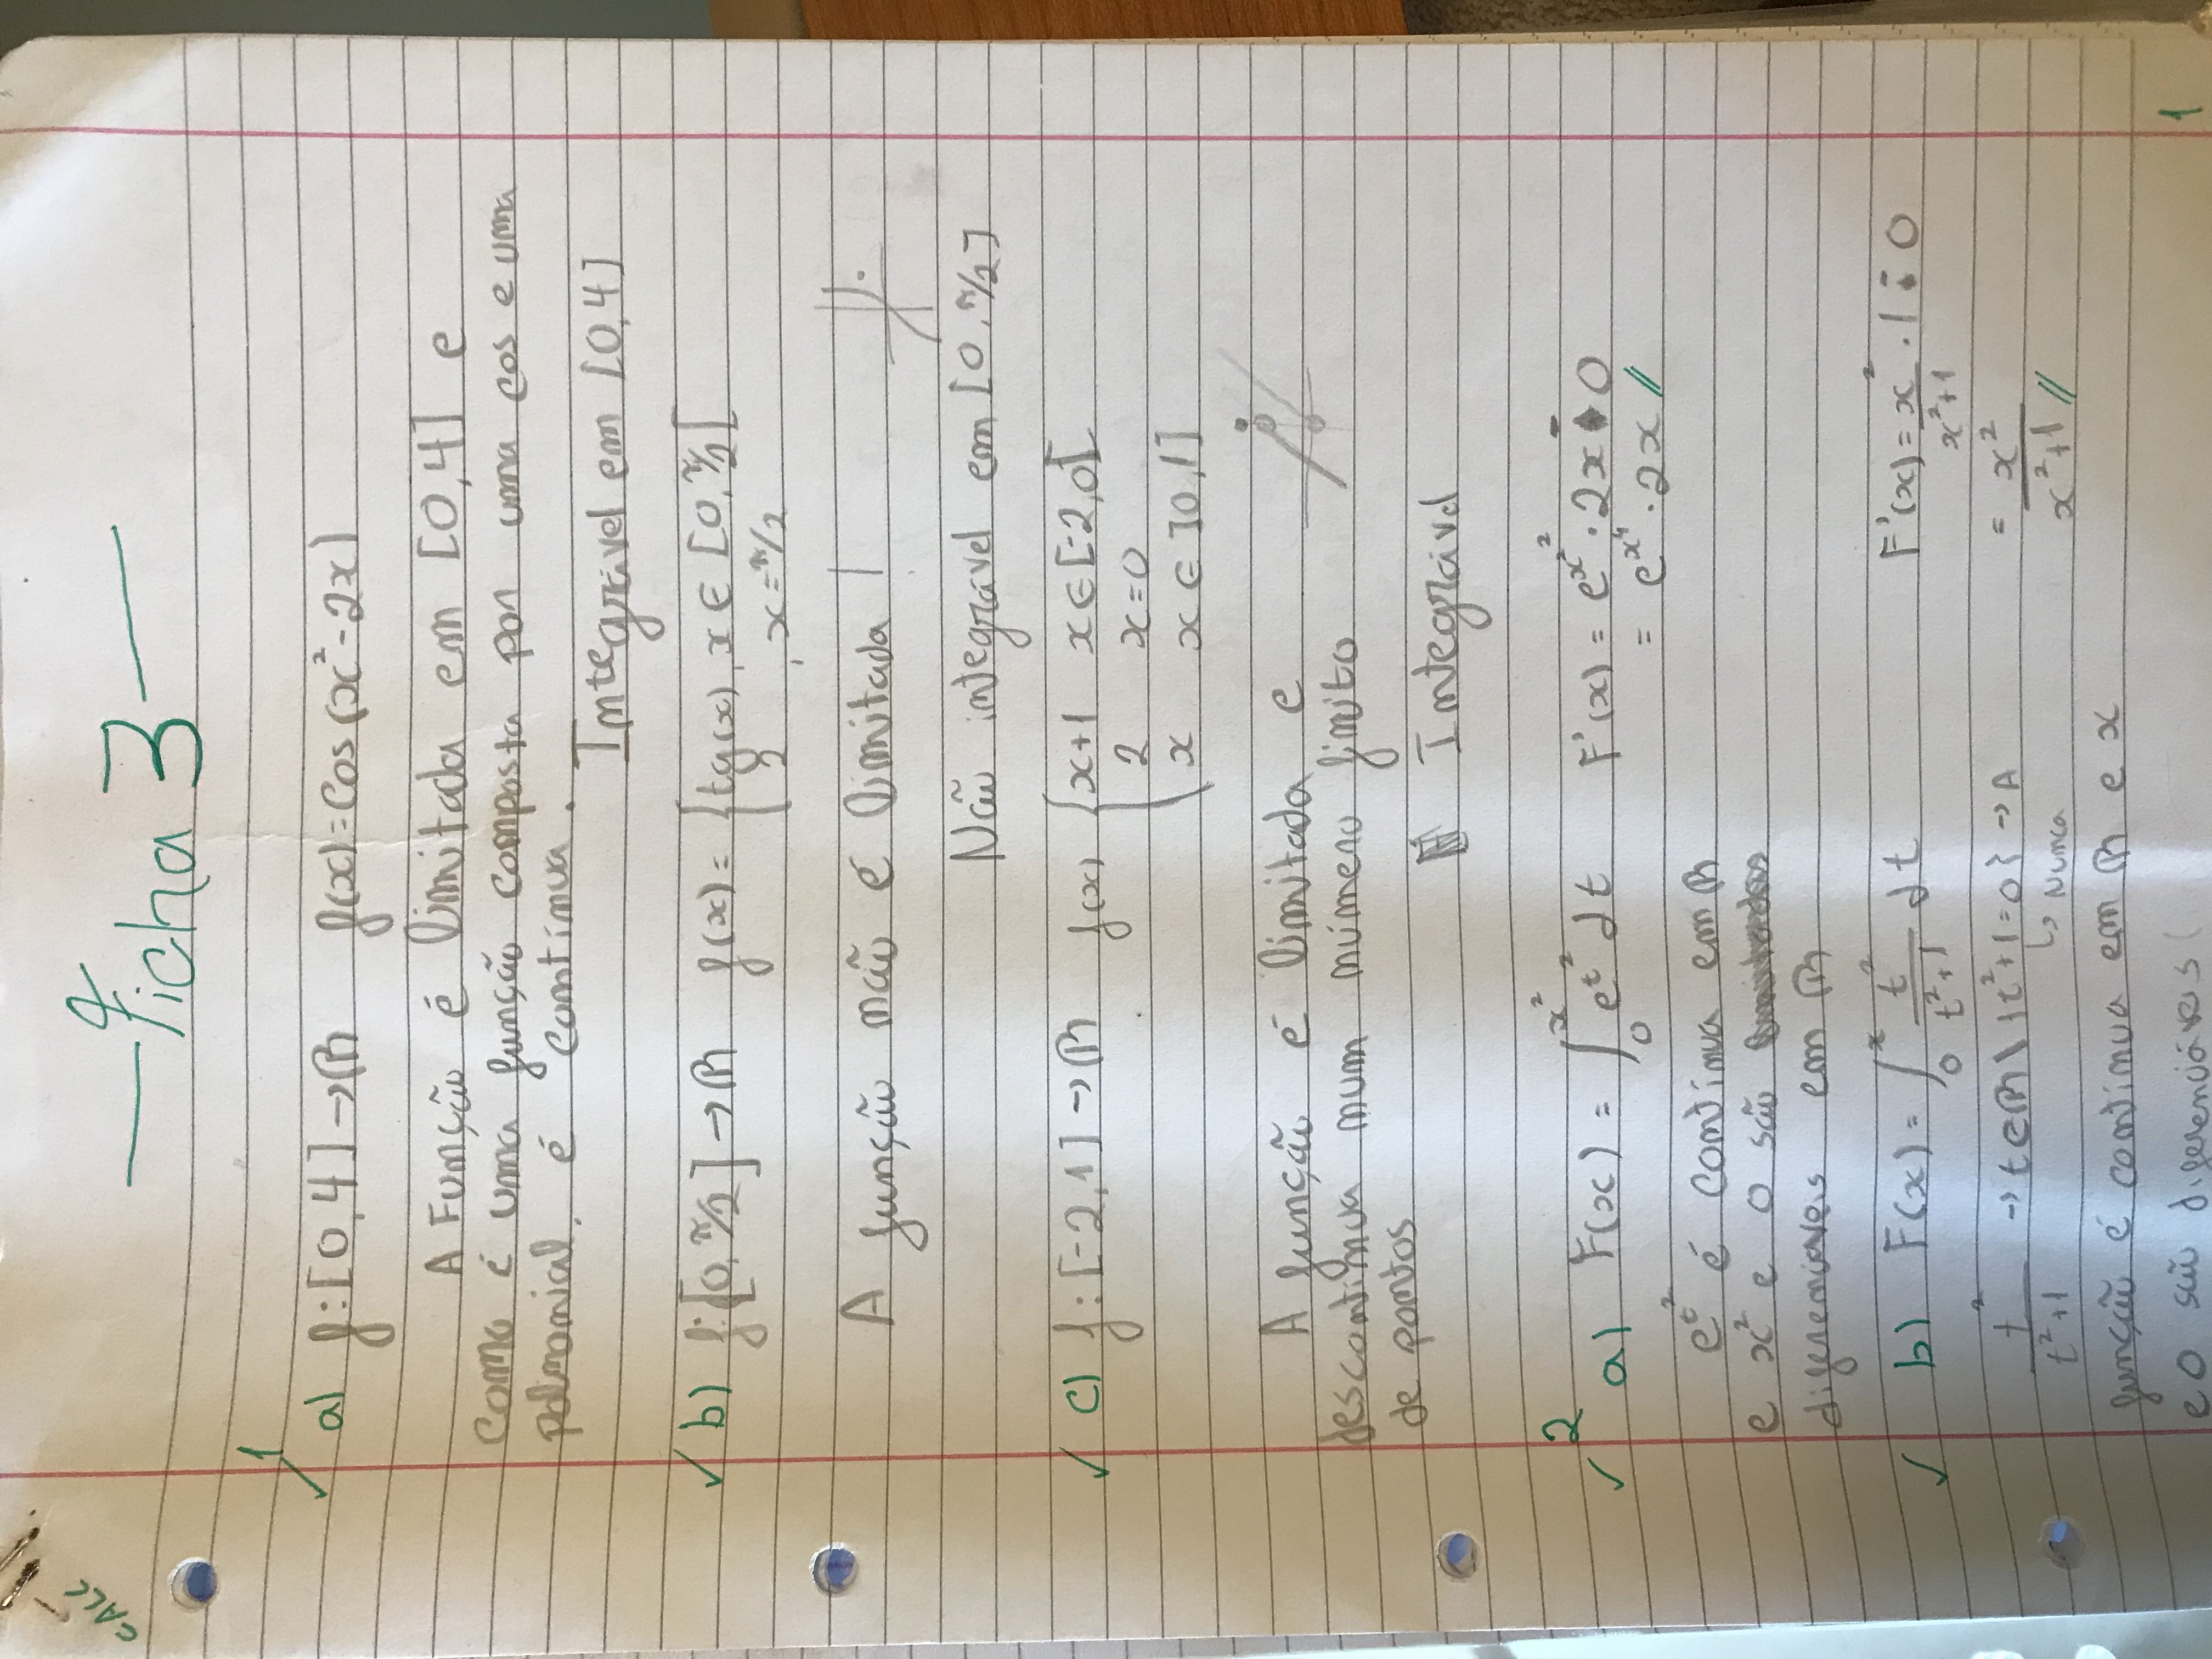 CALC
Ficha 3
1
a) f:[0,4]→ℝ f(x)=cos(x²-2x)
A Função é limitada em [0,4] e
como é uma função composta por uma cos e uma
polinomial, é contínua.
Integrável em [0,4]
b) f:[0,π/2]→ℝ f(x)= {tg(x), x∈[0,π/2[
2 , x=π/2
A função não é limitada!
Não integrável em [0,π/2]
c) f:[-2,1]→ℝ f(x) {x+1 x∈[-2,0[
2 x=0
x x∈]0,1]
A função é limitada e
descontinua num número finito
de pontos
Integrável
2
a) F(x) = ∫₀^x² e^t² dt F'(x) = e^x²² · 2x - 0
= e^x⁴ · 2x //
e^t² é contínua em ℝ
e x² e 0 são
diferenciáveis em ℝ
b) F(x) = ∫₀^x t²/(t²+1) dt F'(x) = x²/(x²+1) · 1 - 0
t²/(t²+1) → t∈ℝ\{t²+1=0} → A = x²/(x²+1) //
↳ Nunca
função é contínua em ℝ e x
e 0 são diferenciáveis!
1